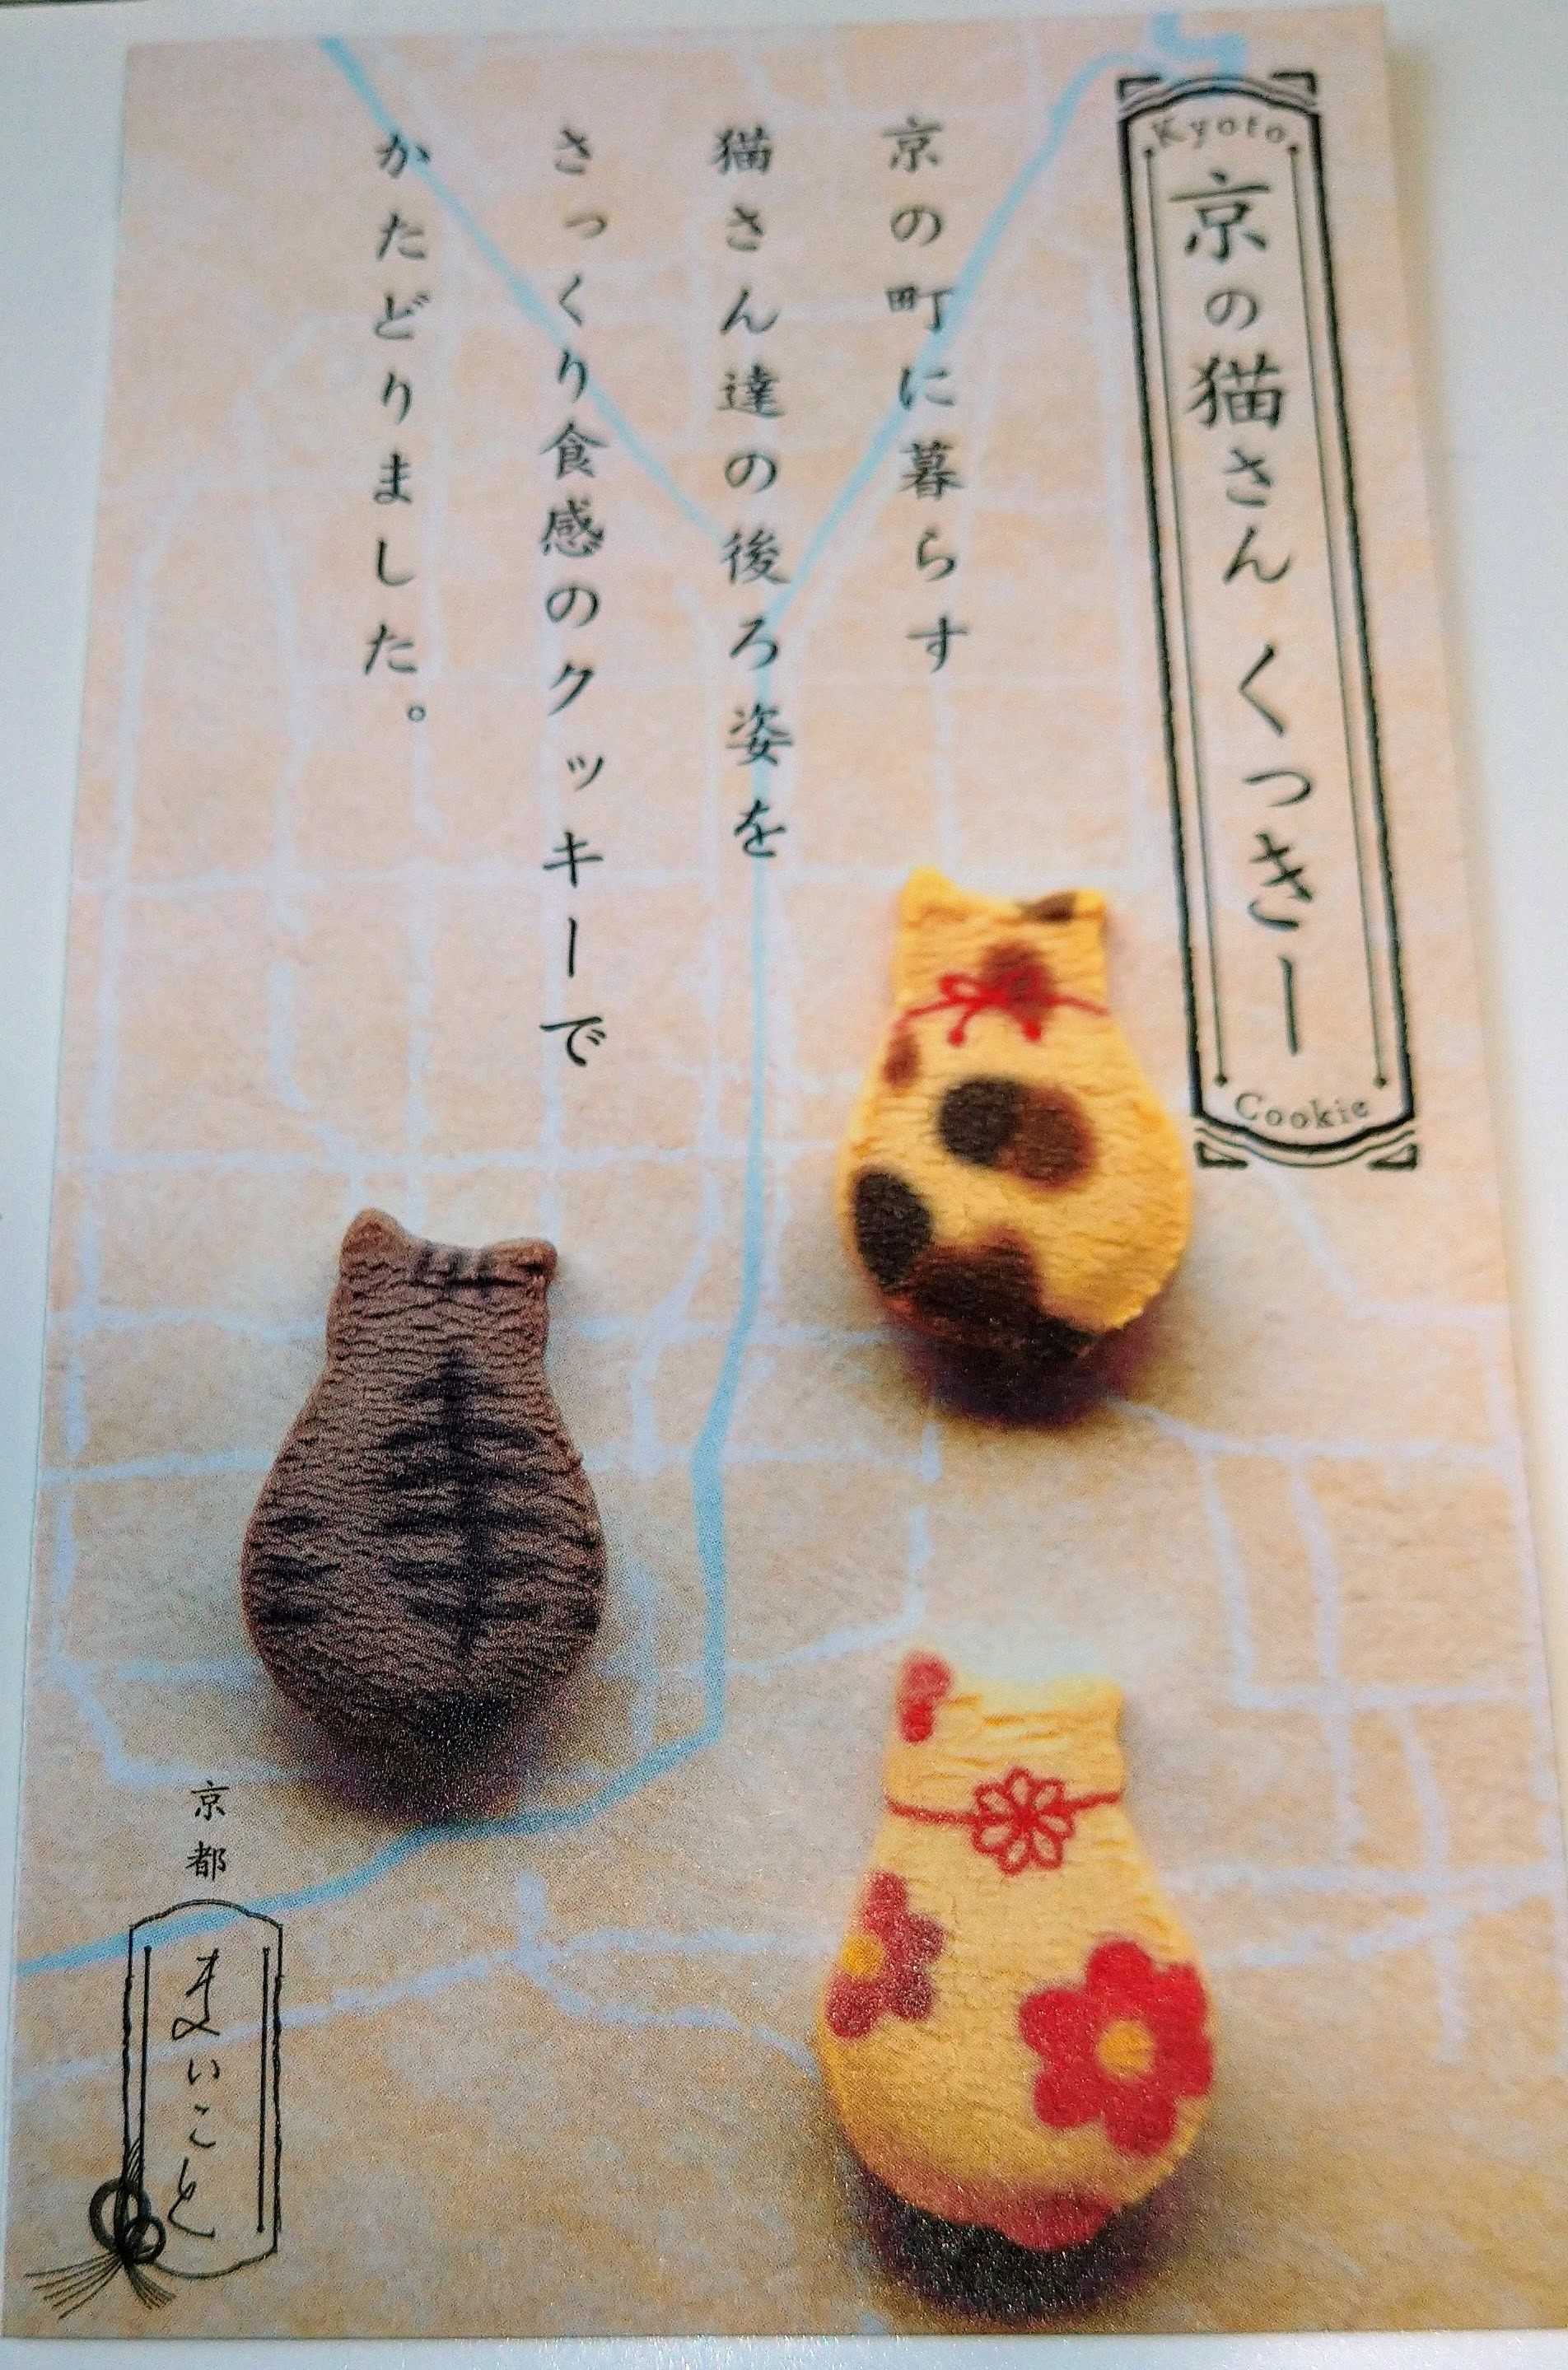 Kyoto
京の猫さん くっきー
Cookie
京の町に暮らす
猫さん達の後ろ姿を
さっくり食感のクッキーで
かたどりました。
京都
まいこと